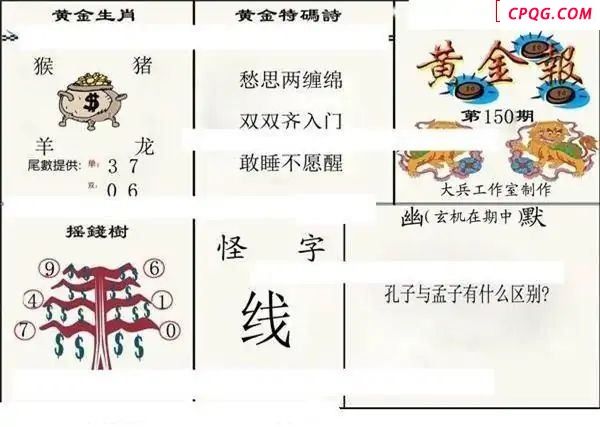 CPQG.COM
黄金生肖
猴 猪
羊 龙
尾數提供: 单: 3 7
双: 0 6
黄金特碼詩
愁思两缠绵
双双齐入门
敢睡不愿醒
黄金報
第150期
大兵工作室制作
摇錢樹
9 6
4 1
7 0
怪字
线
幽(玄机在期中)默
孔子与孟子有什么区别?